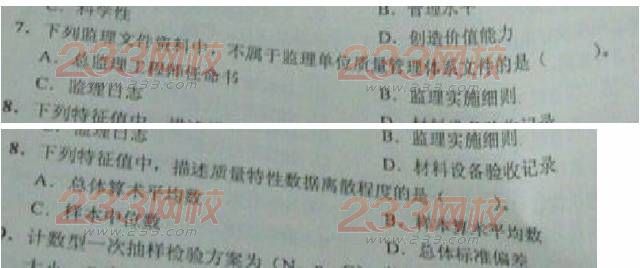 C. 科学性
B. 管理水平
D. 创造价值能力
7. 下列监理文件资料中,不属于监理单位质量管理体系文件的是( )。
A. 总监理工程师任命书
B. 监理实施细则
C. 监理日志
D. 材料设备验收记录
8. 下列特征值中,描述
监理日志
B. 监理实施细则
D. 材料设备验收记录
8. 下列特征值中,描述质量特性数据离散程度的是( )。
A. 总体算术平均数
B. 样本算术平均数
C. 样本中位数
D. 总体标准偏差
计数型一次抽样检验方案为(N
233网校
www.233.com
233网校
www.233.com
233网校
www.233.com
233网校
www.233.com